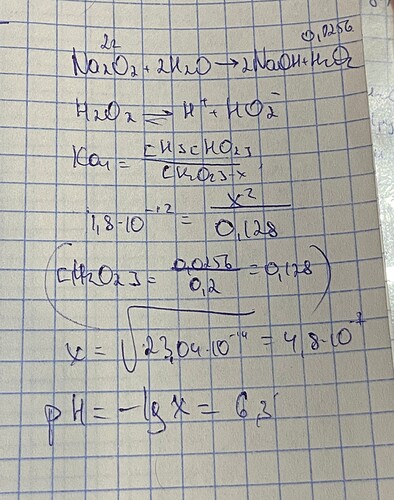 2г 0,0256
Na2O2 + 2H2O → 2NaOH + H2O2
H2O2 ⇌ H⁺ + HO2⁻
Ka1 = [H][HO2] / [H2O2]-x
1,8·10⁻¹² = x² / 0,128
([H2O2] = 0,0256 / 0,2 = 0,128)
x = √23,04·10⁻¹⁴ = 4,8·10⁻⁷
pH = -lg x = 6,3